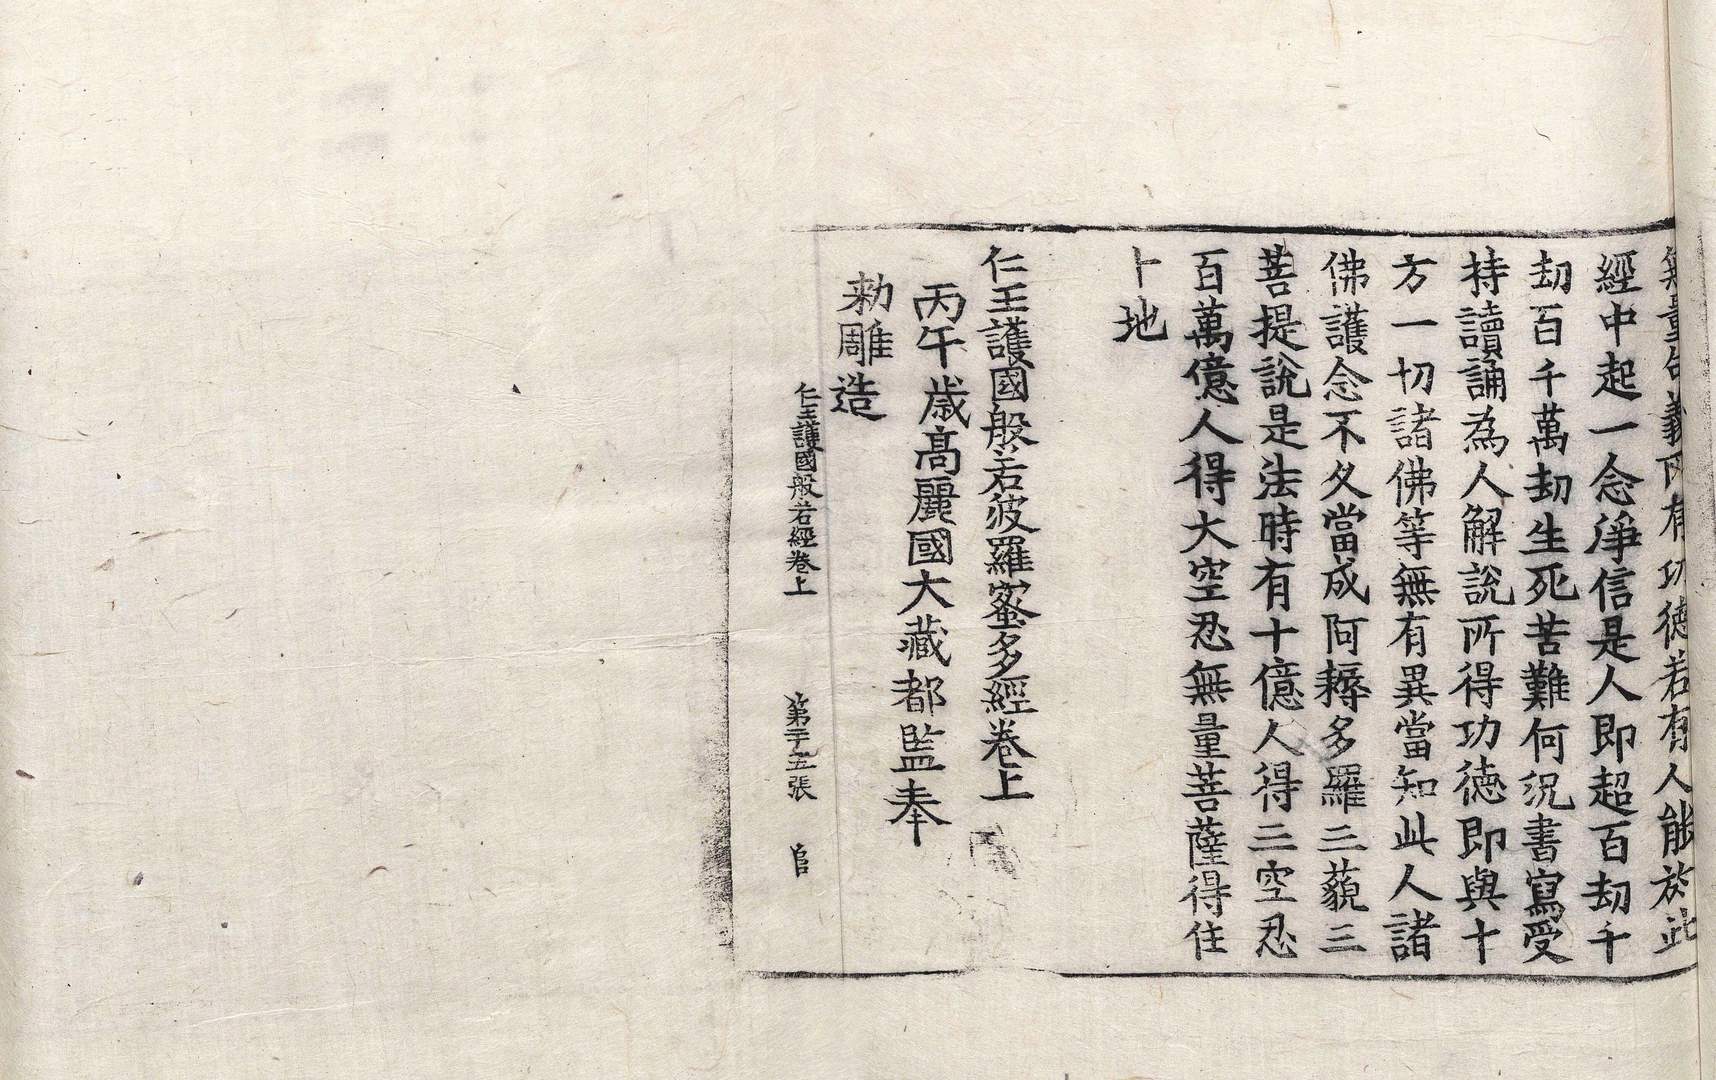 無量句義所有功德若有人能於此
經中起一念淨信是人即超百劫千
劫百千萬劫生死苦難何況書寫受
持讀誦為人解說所得功德即與十
方一切諸佛等無有異當知此人諸
佛護念不久當成阿耨多羅三藐三
菩提說是法時有十億人得三空忍
百萬億人得大空忍無量菩薩得住
十地
仁王護國般若波羅蜜多經卷上
丙午歲高麗國大藏都監奉
勑雕造
仁王護國般若經卷上 第二十五張